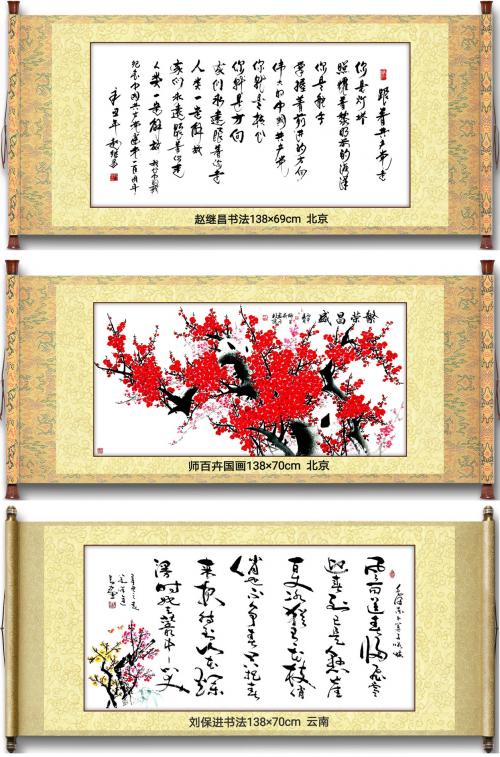 跟着共产党走
你是灯塔
照耀着黎明前的海洋
你是舵手
掌握着前进的方向
伟大的中国共产党
你就是核心
你就是方向
我们永远跟着你走
人类一定解放
我们永远跟着你走
人类一定解放
纪念中国共产党建党一百周年
辛丑年
赵继昌书法138×69cm 北京
繁荣昌盛
师百卉国画138×70cm 北京
風雨送春归飞雪
迎春到已是悬崖
百丈冰犹有花枝俏
俏也不争春只把春
来报待到山花烂
漫时她在丛中笑
刘保进书法138×70cm 云南